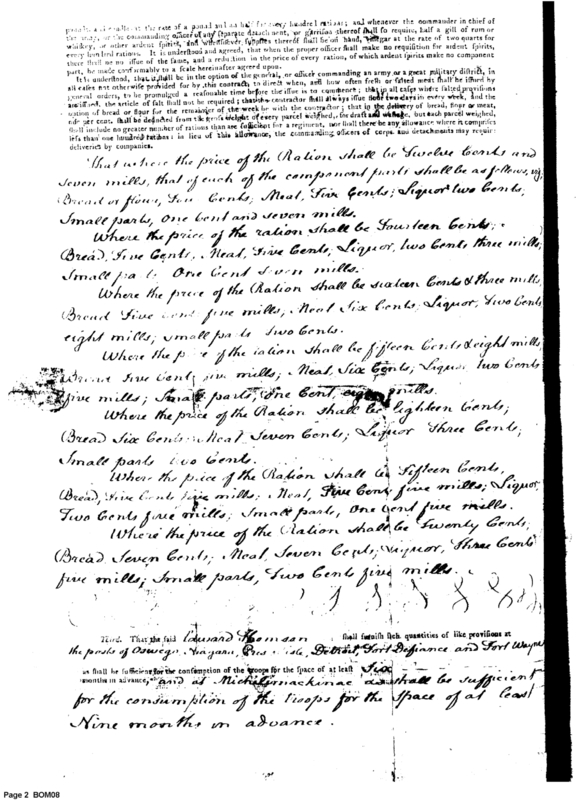 pound and a half for every hundred rations; and whenever the commander in chief of
the army, or the commanding officer of any separate detachment, or garrison thereof shall so require, half a gill of rum or
whiskey, or other ardent spirits, and whensoever supplies thereof shall be on hand, vinegar at the rate of two quarts for
every hundred rations. It is understood and agreed, that when the proper officer shall make no requisition for ardent spirits,
there shall be no issue of the same, and a reduction in the price of every ration, of which ardent spirits make no component
part, be made conformably to a scale hereinafter agreed upon.
It is understood, that it shall be in the option of the general, or officer commanding an army or a great military district, in
all cases not otherwise provided for by this contract, to direct when, and how often fresh or salted meat shall be issued by
general orders, to be promulged a reasonable time before the issue is to commence; that in all cases where salted provisions
are issued, the article of salt shall not be required; the contractor shall always issue flour two days in every week, and the
option of bread or flour for the remainder of the week be with the contractor; that in the delivery of bread, flour or meat,
per cent. shall be deducted from the gross weight of every parcel weighed, for draft and wastage, but each parcel weighed,
shall include no greater number of rations than are sufficient for a regiment, nor shall there be any allowance where it comprises
less than one hundred rations: in lieu of this allowance, the commanding officers of corps and detachments may require
deliveries by companies.
That where the price of the Ration shall be Twelve Cents and
seven mills, that of each of the component parts shall be as follows, viz,
Bread or flour, Cents; Meat, Five Cents; Liquor two Cents;
Small parts, One Cent and seven mills.
Where the price of the ration shall be Fourteen Cents;
Bread, Five Cents, Meat, Five Cents; Liquor, two Cents three mills;
Small parts One Cent seven mills.
Where the price of the Ration shall be sixteen Cents & three mills,
Bread Five Cents five mills, Meat Six Cents; Liquor, Two Cents
eight mills; small parts Two Cents.
Where the price of the ration shall be fifteen Cents & eight mills
Bread Five Cents five mills; Meat, Six Cents; Liquor two Cents
five mills; Small parts, One Cent, eight mills.
Where the price of the Ration shall be Eighteen Cents;
Bread Six Cents; Meat Seven Cents; Liquor Three Cents;
Small parts two Cents.
Where the price of the Ration shall be Fifteen Cents,
Bread, Five Cents five mills; Meat, Five Cents five mills; Liquor,
Two Cents five mills; Small parts, One Cent five mills.
Where the price of the Ration shall be Twenty Cents;
Bread Seven Cents; Meat, Seven Cents; Liquor, Three Cents
five mills; Small parts, Two Cents five mills.
Third. That the said Edward Thomson shall furnish such quantities of like provisions at
the posts of Oswego Niagara, Presque isle, Detroit, Fort Defiance and Fort Wayne
as shall be sufficient for the consumption of the troops for the space of at least Six
months in advance, and at Michilimackinac as shall be sufficient
for the consumption of the troops for the space of at least
Nine months in advance.
Page 2 BOM08